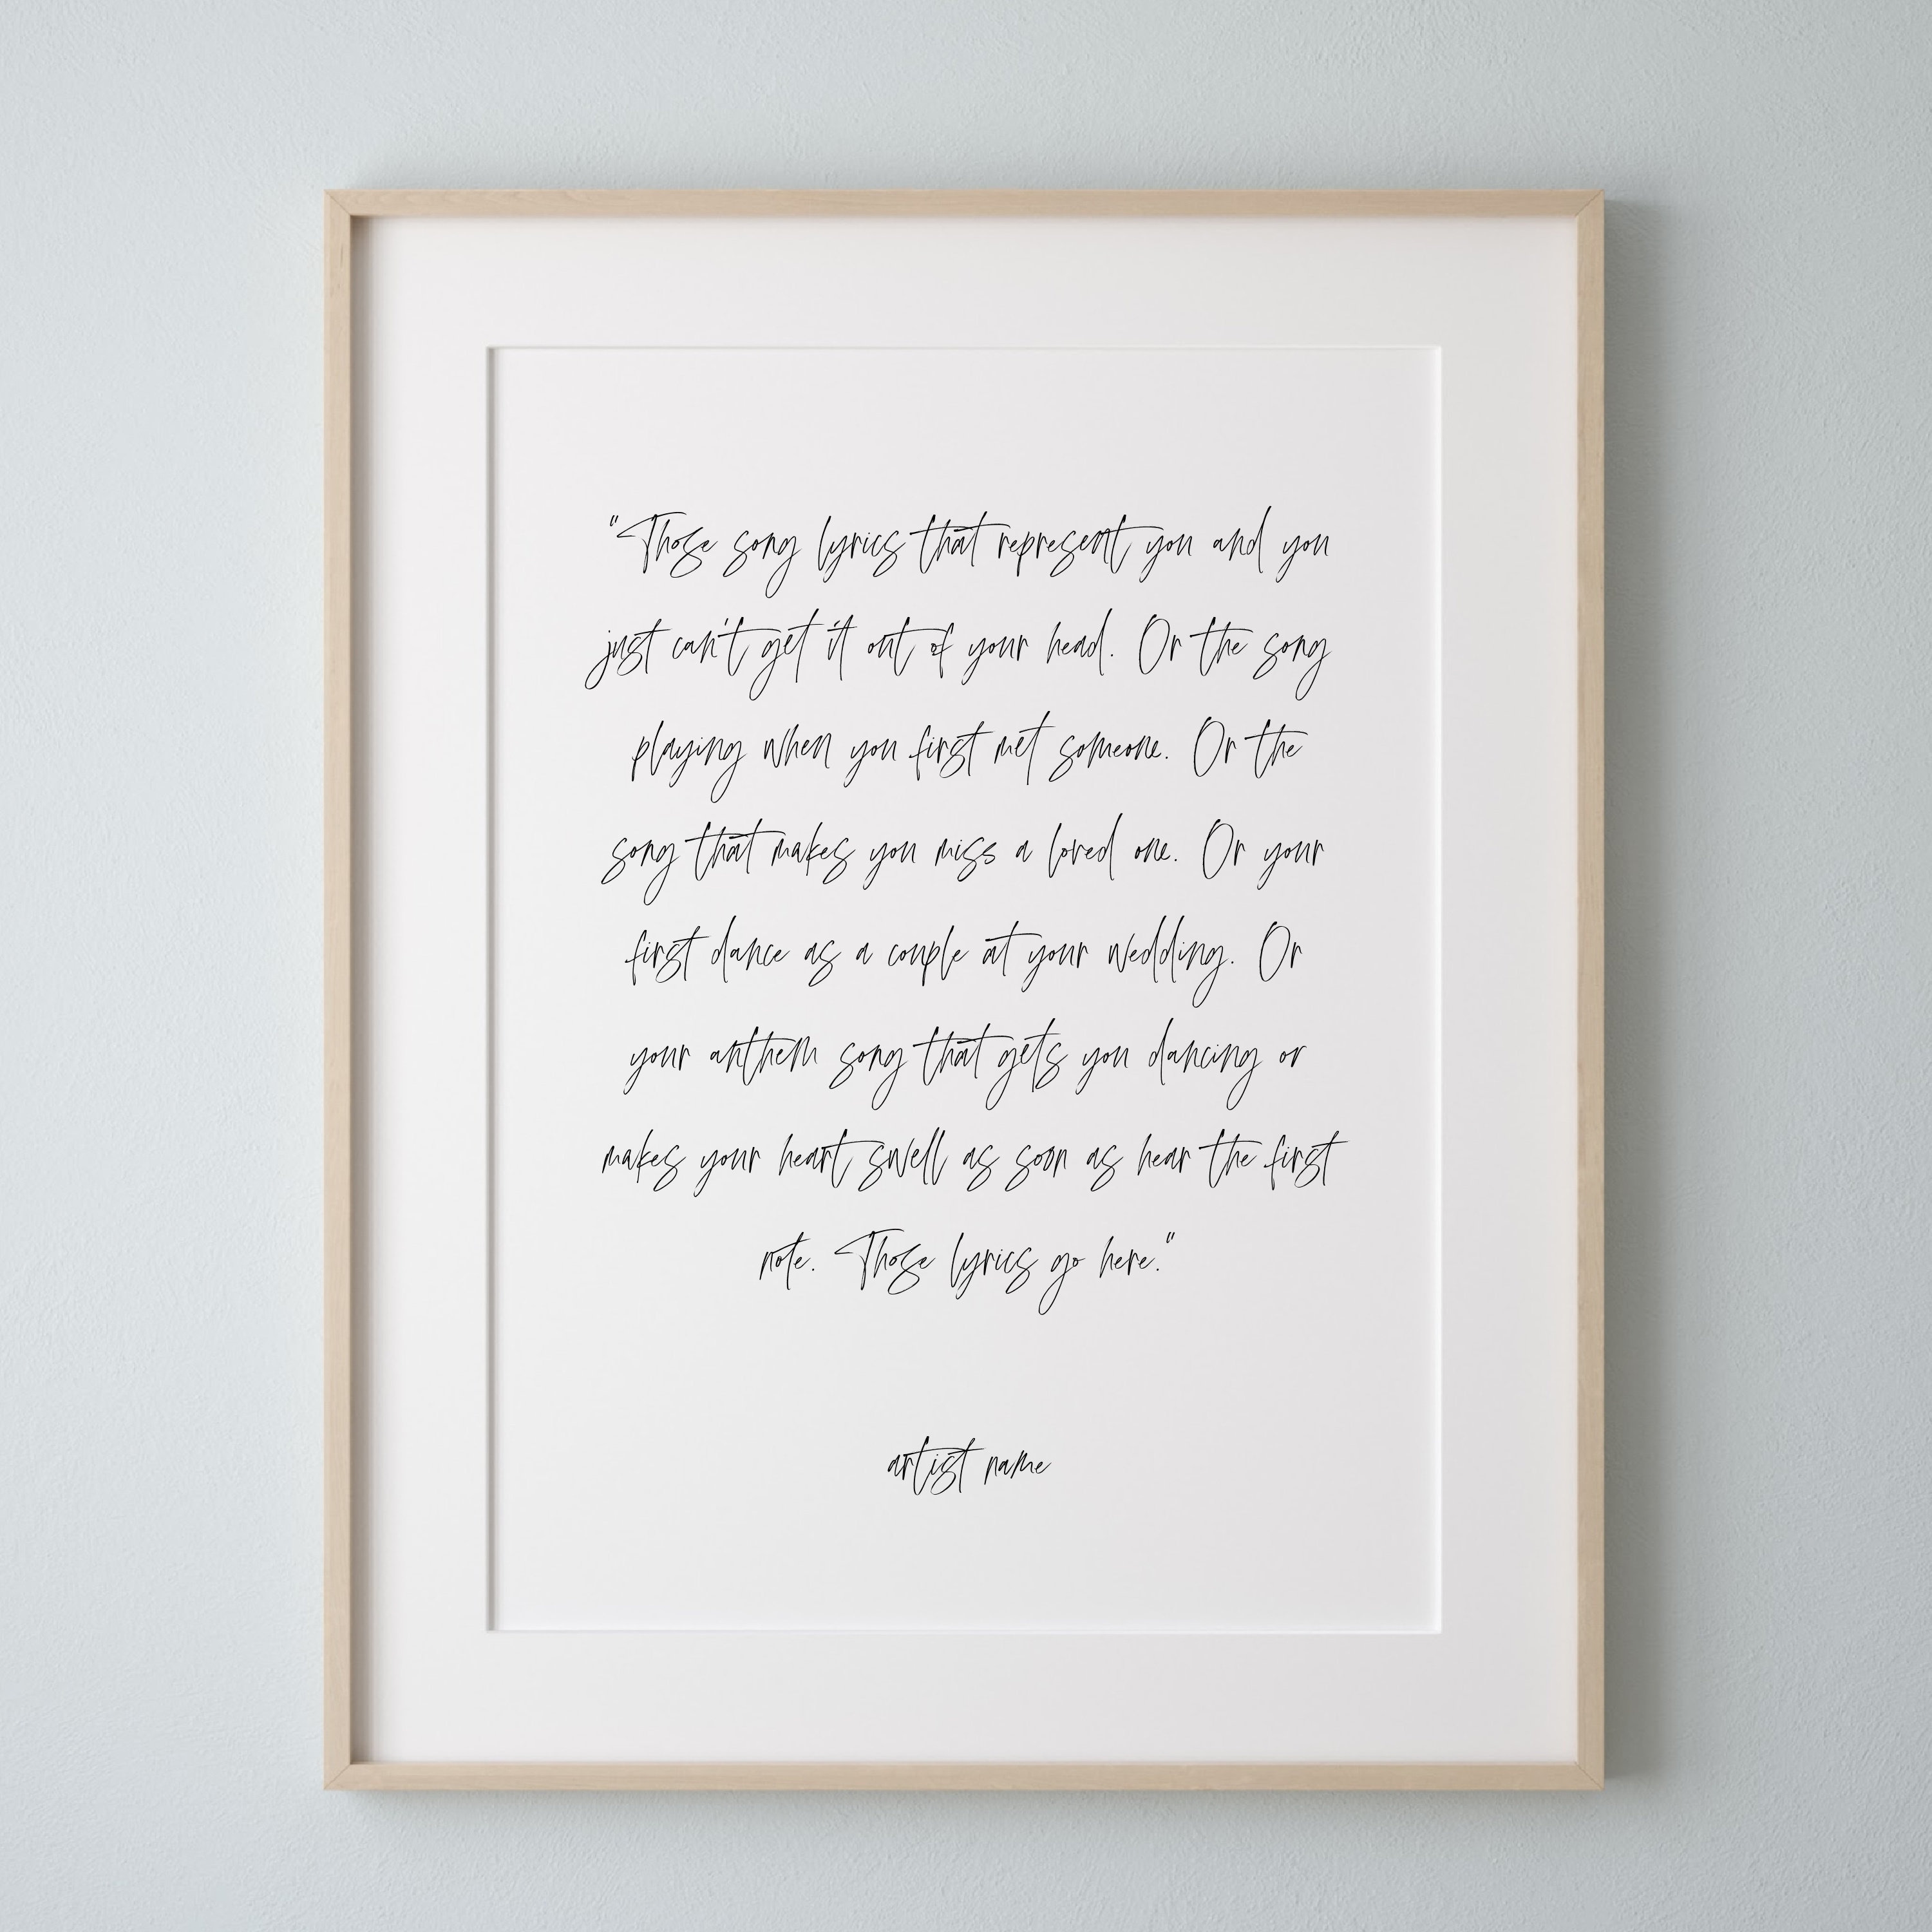 "Those song lyrics that represent you and you
just can't get it out of your head. Or the song
playing when you first met someone. Or the
song that makes you miss a loved one. Or your
first dance as a couple at your wedding. Or
your anthem song that gets you dancing or
makes your heart swell as soon as hear the first
note. Those lyrics go here."
artist name